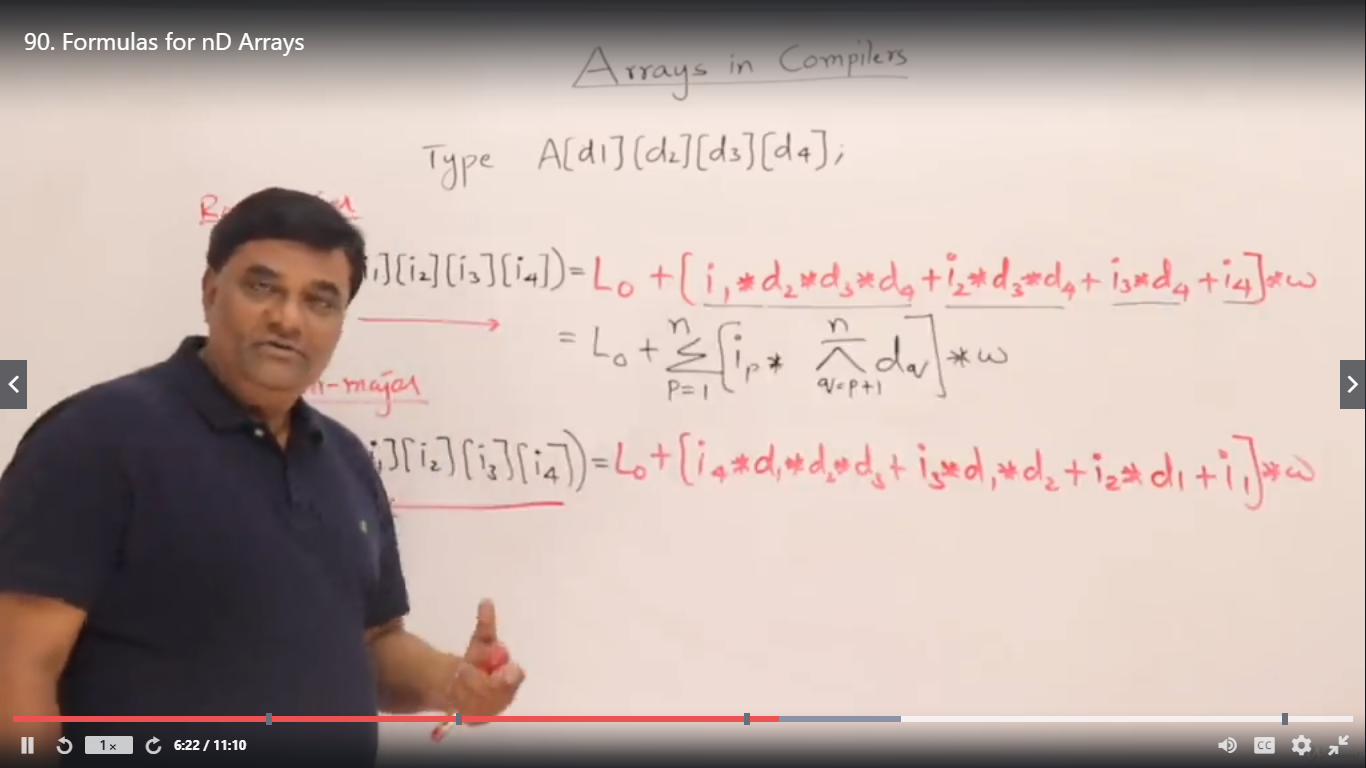 90. Formulas for nD Arrays
Arrays in Compilers
Type A[d1][d2][d3][d4];
i₁][i₂][i₃][i₄]) = L₀ + [i₁*d₂*d₃*d₄ + i₂*d₃*d₄ + i₃*d₄ + i₄]*w
= L₀ + Σ n p=1 [iₚ * Π n q=p+1 d_q] * w
-major
i₁][i₂][i₃][i₄]) = L₀ + [i₄*d₁*d₂*d₃ + i₃*d₁*d₂ + i₂*d₁ + i₁]*w
1x 6:22 / 11:10 CC